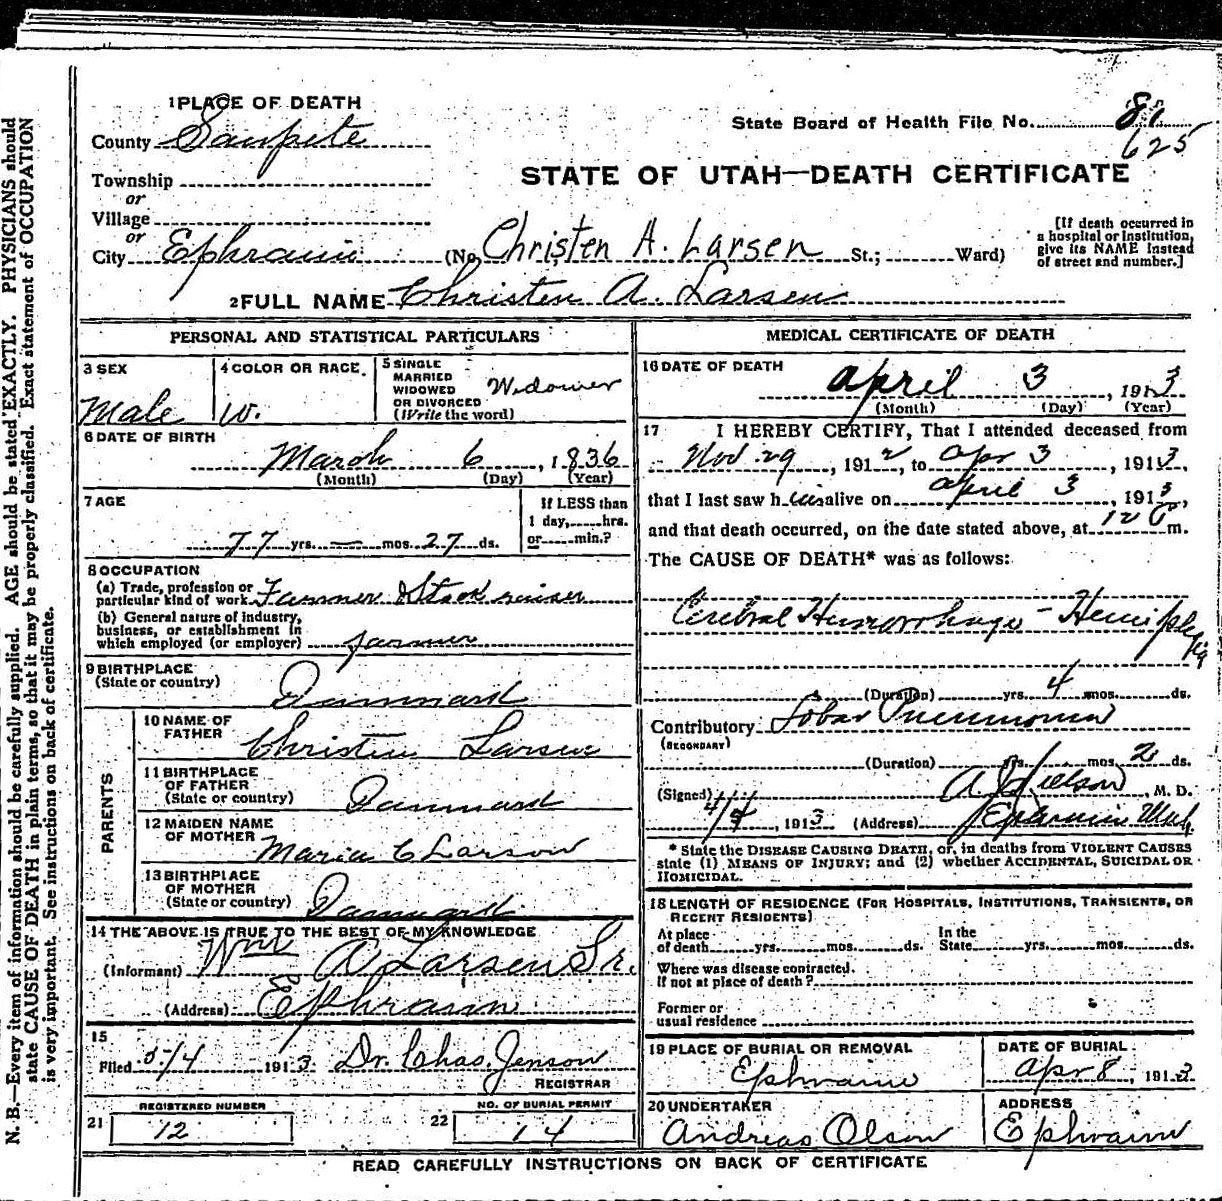 1 PLACE OF DEATH
County Sanpete
Township
or
Village
or
City Ephraim (No. Christen A. Larsen St.; Ward)
State Board of Health File No. 81
625
STATE OF UTAH—DEATH CERTIFICATE
[If death occurred in
a hospital or institution,
give its NAME instead
of street and number.]
2 FULL NAME Christen A. Larsen
PERSONAL AND STATISTICAL PARTICULARS
3 SEX
Male
4 COLOR OR RACE
W.
5 SINGLE
MARRIED
WIDOWED
OR DIVORCED
(Write the word)
Widower
6 DATE OF BIRTH
March 6, 1836
(Month) (Day) (Year)
7 AGE
77 yrs. — mos. 27 ds.
If LESS than
1 day, hrs.
or min.?
8 OCCUPATION
(a) Trade, profession or
particular kind of work Farmer & Stock raiser
(b) General nature of industry,
business, or establishment in
which employed (or employer) farmer
9 BIRTHPLACE
(State or country)
Danmark
PARENTS
10 NAME OF
FATHER
Christen Larsen
11 BIRTHPLACE
OF FATHER
(State or country)
Danmark
12 MAIDEN NAME
OF MOTHER
Maria C Larson
13 BIRTHPLACE
OF MOTHER
(State or country)
Danmark
14 THE ABOVE IS TRUE TO THE BEST OF MY KNOWLEDGE
(Informant) Wm A Larsen Sr.
(Address) Ephraim
15
Filed 5/4 1913 Dr. Chas. Jenson
REGISTRAR
REGISTERED NUMBER
21 12
NO. OF BURIAL PERMIT
22 14
MEDICAL CERTIFICATE OF DEATH
16 DATE OF DEATH
April 3, 1913
(Month) (Day) (Year)
17 I HEREBY CERTIFY, That I attended deceased from
Nov 29, 1912, to Apr 3, 1913,
that I last saw him alive on April 3, 1913,
and that death occurred, on the date stated above, at m.
The CAUSE OF DEATH* was as follows:
Cerebral Hemorrhage - Hemiplegia
(Duration) yrs. 4 mos. ds.
Contributory Lobar Pneumonia
(SECONDARY)
(Duration) yrs. mos. 2 ds.
(Signed) A. Nielson, M. D.
1913 (Address) Ephraim Utah
* State the DISEASE CAUSING DEATH, or, in deaths from VIOLENT CAUSES
state (1) MEANS OF INJURY; and (2) whether ACCIDENTAL, SUICIDAL OR
HOMICIDAL.
18 LENGTH OF RESIDENCE (FOR HOSPITALS, INSTITUTIONS, TRANSIENTS, OR
RECENT RESIDENTS)
At place
of death yrs. mos. ds.
In the
State yrs. mos. ds.
Where was disease contracted.
If not at place of death?
Former or
usual residence
19 PLACE OF BURIAL OR REMOVAL
Ephraim
DATE OF BURIAL
Apr 8, 1913
20 UNDERTAKER
Andreas Olson
ADDRESS
Ephraim
READ CAREFULLY INSTRUCTIONS ON BACK OF CERTIFICATE
N. B.—Every item of information should be carefully supplied. AGE should be stated EXACTLY. PHYSICIANS should
state CAUSE OF DEATH in plain terms, so that it may be properly classified. Exact statement of OCCUPATION
is very important. See instructions on back of certificate.